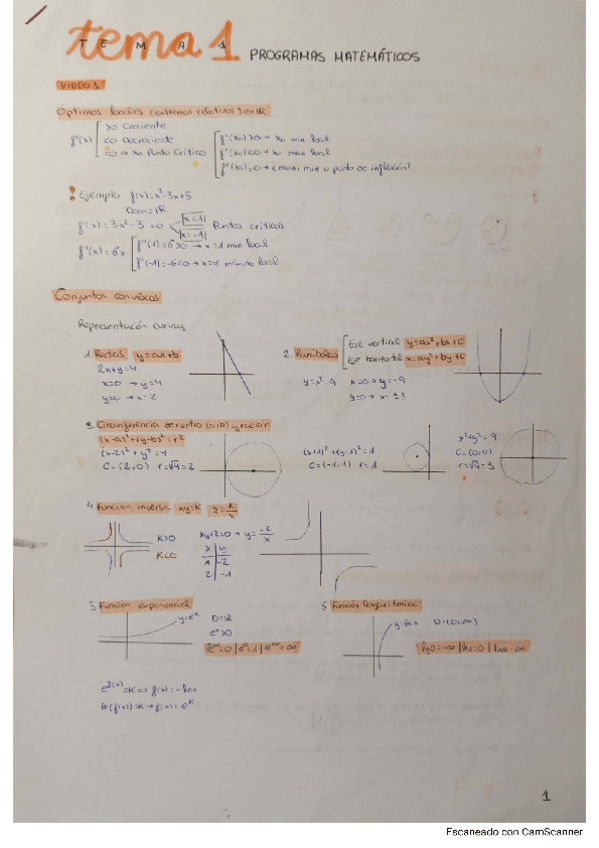 tema 1
TEMA 1 PROGRAMAS MATEMÁTICOS
VIDEO 1
Óptimos locales (extremos relativos) en IR
f'(x) >0 Creciente
<0 Decreciente
=0 → x0 Punto Crítico
f''(x0)>0 → x0 min local
f''(x0)<0 → x0 max local
f''(x0)=0 → ¿max, min o punto de inflexión?
Ejemplo f(x)=x³-3x+5
Dom=IR
f'(x)=3x²-3=0 x=1 x=-1 Puntos críticos
f''(x)=6x f''(1)=6>0 → x=1 min local
f''(-1)=-6<0 → x=-1 máximo local
Conjuntos convexos
Representación curvas
1. Rectas y=ax+b
2x+y=4
x=0 → y=4
y=0 → x=2
2. Parábolas Eje vertical y=ax²+bx+c
Eje horizontal x=ay²+by+c
y=x²-9 x=0 → y=-9
y=0 → x=±3
3. Circunferencia de centro (a,b) y radio r
(x-a)²+(y-b)²=r²
(x-2)²+y²=4
C=(2,0) r=√4=2
(x+1)²+(y-1)²=1
C=(-1,1) r=1
x²+y²=9
C=(0,0)
r=√9=3
4. Función inversa xy=K y=K/x
K>0
K<0
xy+2=0 → y=-2/x
x y
1 -2
2 -1
5. Función exponencial
y=e^x D=IR
e^x>0
e^-∞=0 | e^0=1 | e^∞=∞
Función logarítmica
y=ln x D=(0,∞)
ln0=-∞ | ln1=0 | ln∞=∞
e^f(x)=K => f(x)=lnK
ln(f(x))=K → f(x)=e^K
1
Escaneado con CamScanner